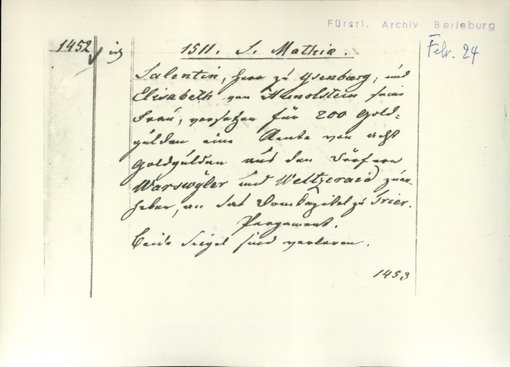 Fürstl. Archiv Berleburg
1452
1511. S. Mathiæ.
Febr. 24
Salentin, Herr zu Ysenburg, und
Elisabeth von Hunolstein seine
Frau, versetzen für 200 Gold-
gulden eine Rente von acht
Goldgulden aus den Dörfern
Warswyler und Weltzeraid
an das Domkapitel zu Trier.
Pergament.
Beide Siegel sind verloren.
1453